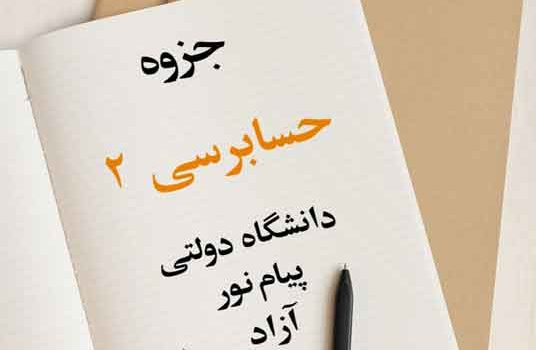 جزوه
حسابرسی ۲
دانشگاه دولتی
پیام نور
آزاد